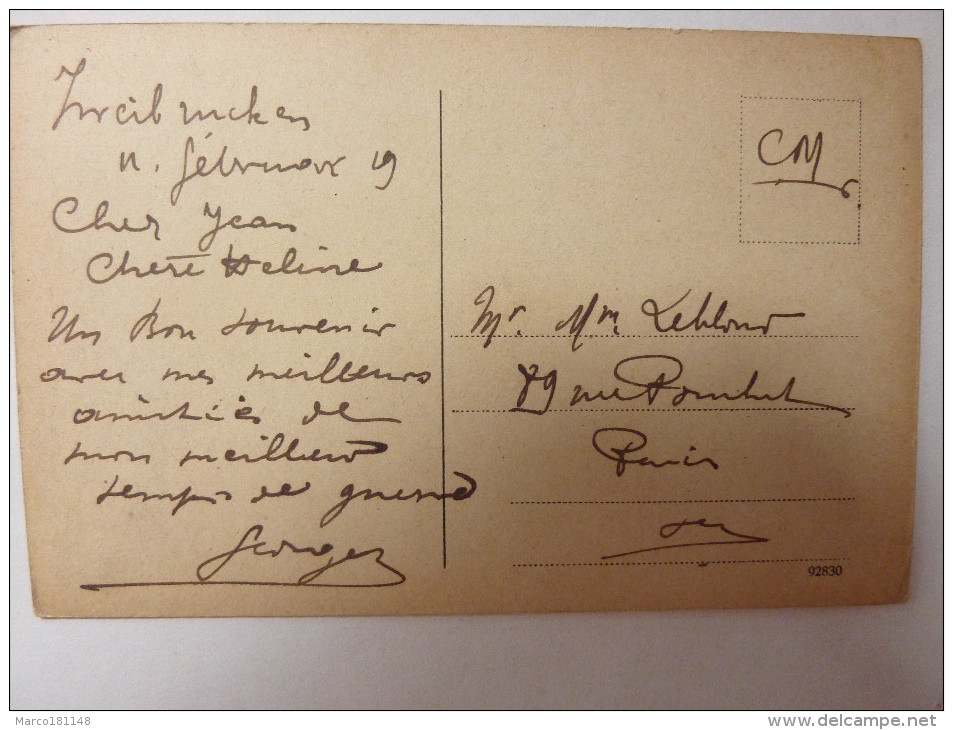 Zweibrucken
11. février 19
Cher Jean
Chère Heline
Un Bon souvenir
avec mes meilleurs
amitiés de
mon meilleurs
temps de guerre
Georges
CM
Mr. Mm Leblond
89 rue
Paris
92830
Marco181148
www.delcampe.net